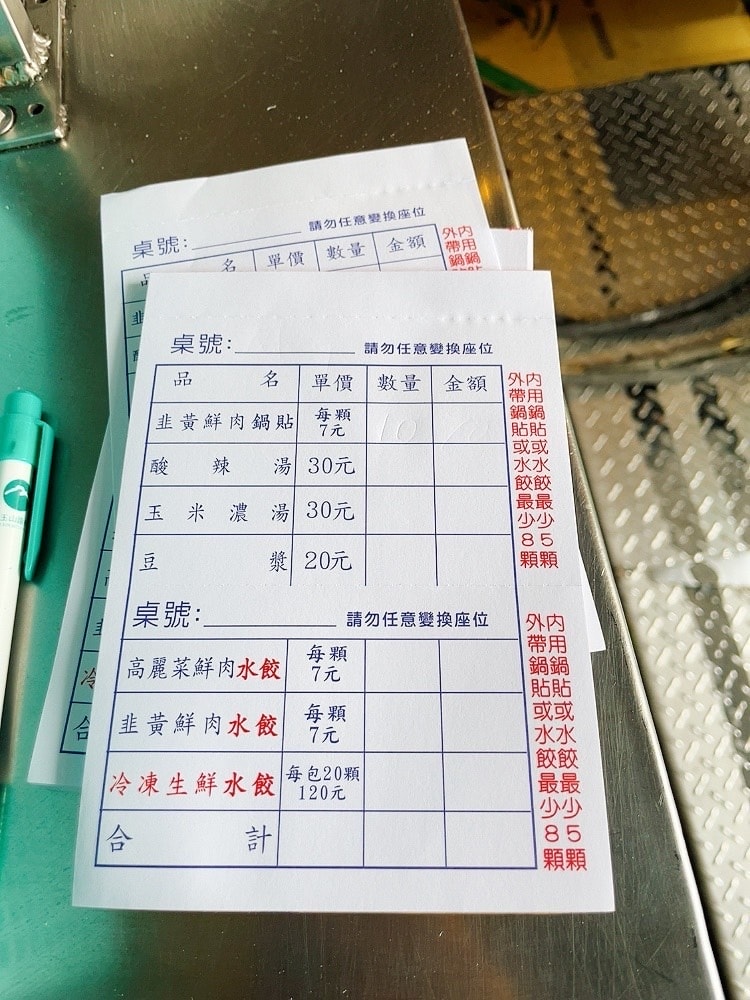 桌號:
請勿任意變換座位
名 單價 數量 金額
外帶鍋
內用鍋
桌號:
請勿任意變換座位
品名 單價 數量 金額
韭黃鮮肉鍋貼 每顆7元 10
酸辣湯 30元
玉米濃湯 30元
豆漿 20元
內用鍋貼或水餃最少5顆
外帶鍋貼或水餃最少8顆
桌號:
請勿任意變換座位
高麗菜鮮肉水餃 每顆7元
韭黃鮮肉水餃 每顆7元
冷凍生鮮水餃 每包20顆120元
合計
內用鍋貼或水餃最少5顆
外帶鍋貼或水餃最少8顆